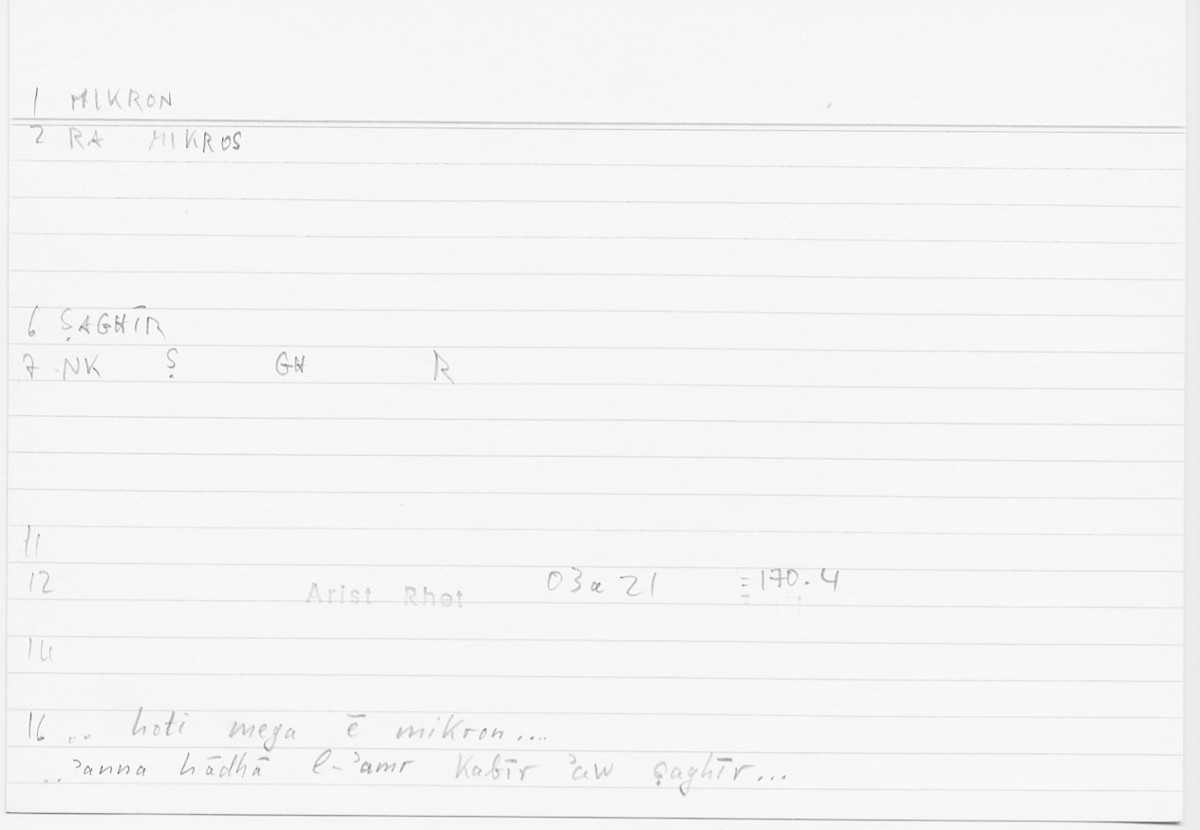 1 MIKRON
2 RA MIKROS
6 ṢAGHĪR
7 NK Ṣ GH R
11
12 Arist Rhet 03a21 ≡170.4
14
16 .. hoti mega ē mikron....
..ʾanna hādhā l-ʾamr Kabīr ʾaw ṣaghīr...